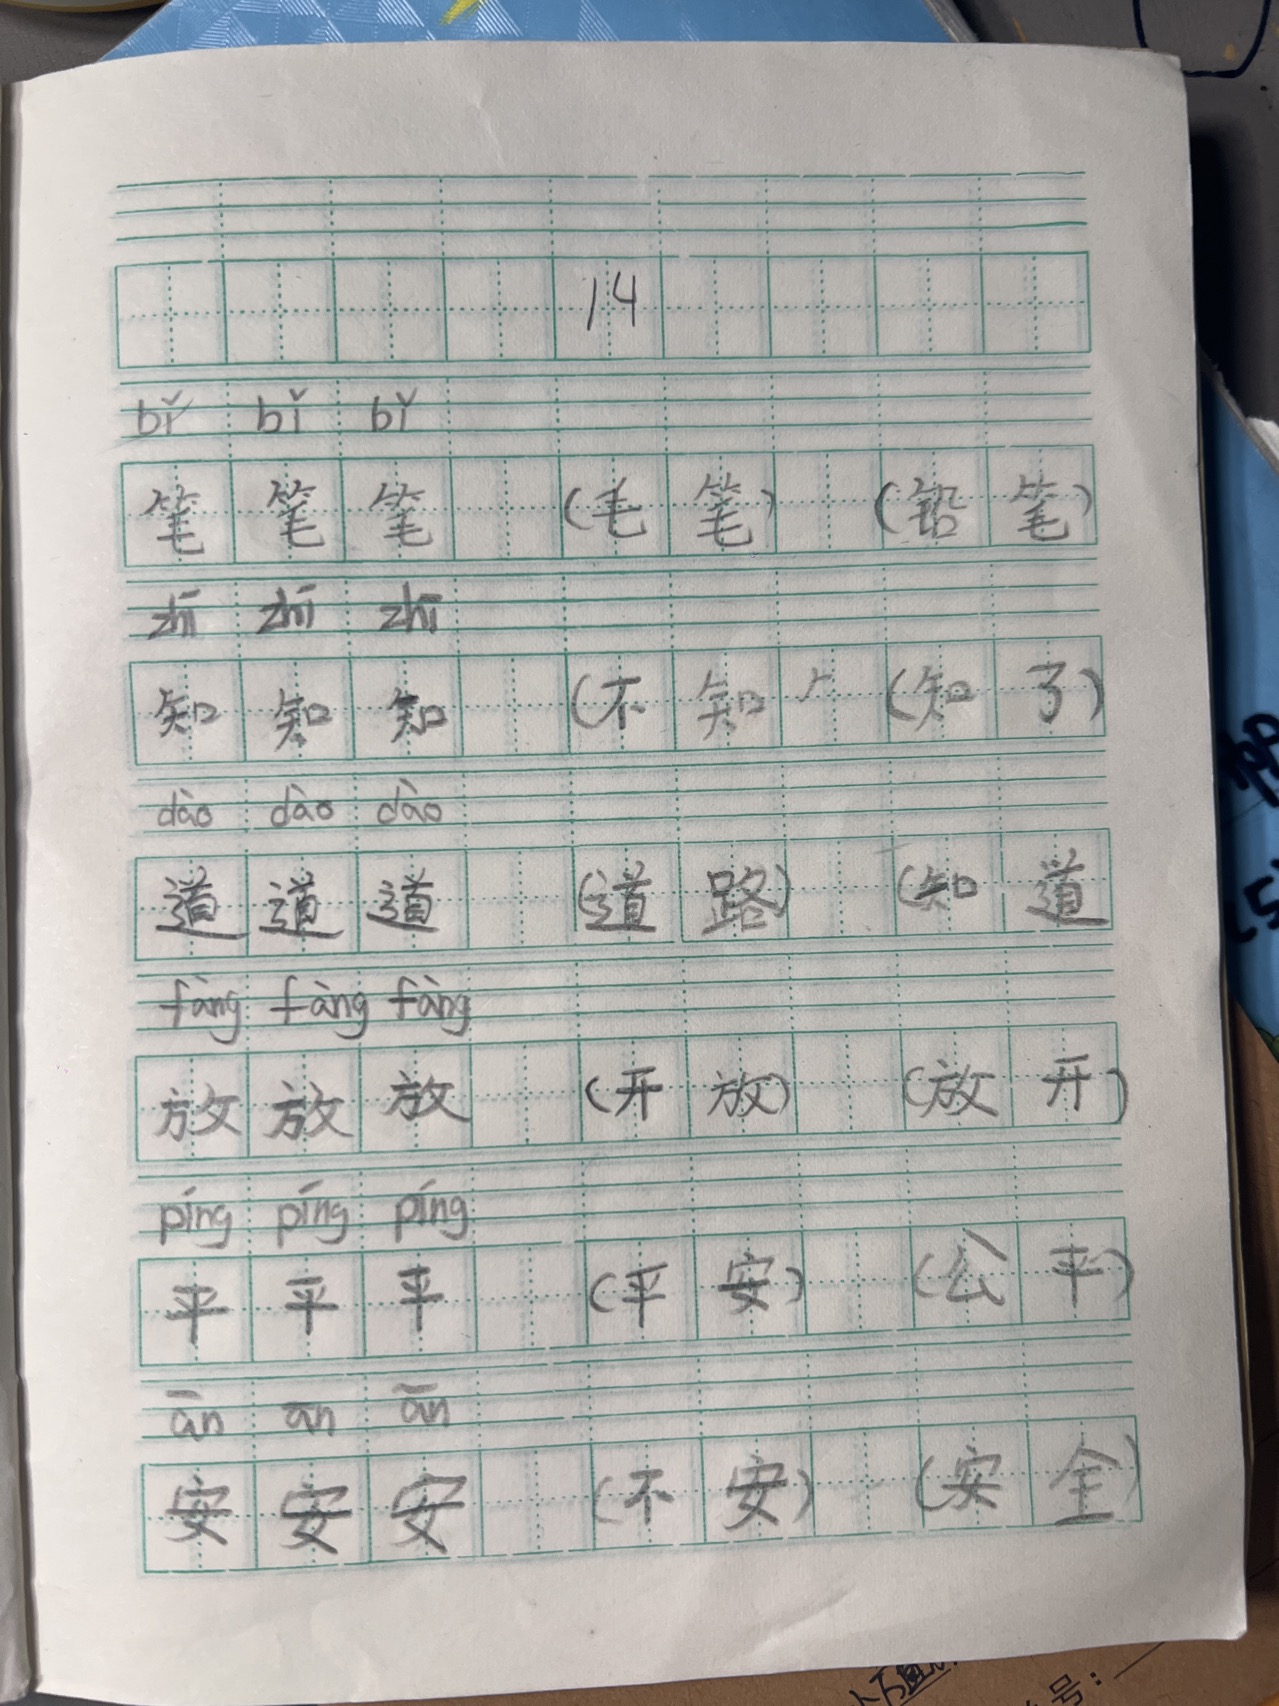 14
bǐ bǐ bǐ
笔 笔 笔 (毛 笔) (铅 笔)
zhī zhī zhī
知 知 知 (不 知 (知 了)
dào dào dào
道 道 道 (道 路) (知 道
fàng fàng fàng
放 放 放 (开 放) (放 开)
píng píng píng
平 平 平 (平 安) (公 平)
ān ān ān
安 安 安 (不 安) (安 全)
号：